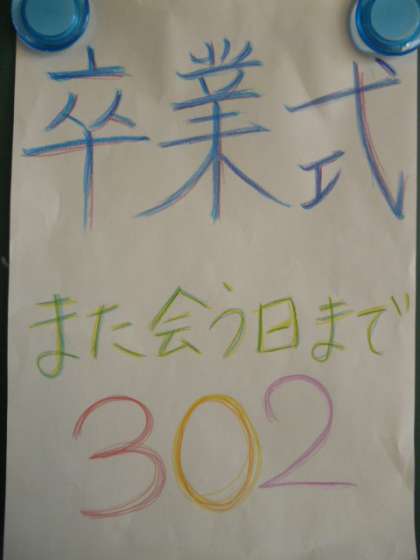 卒業式
また会う日まで
302